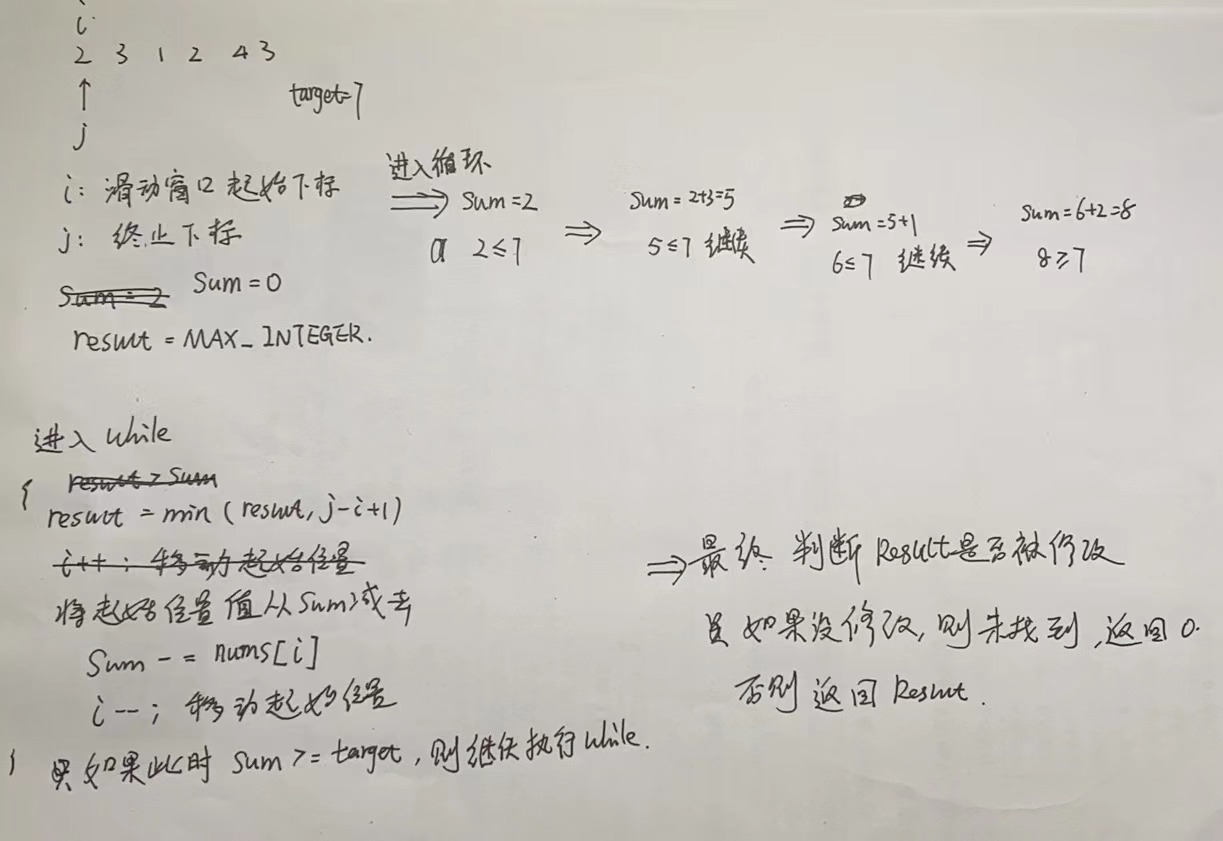 i
2 3 1 2 4 3
↑
target=7
j
i: 滑动窗口起始下标
j: 终止下标
Sum = 2 Sum = 0
result = MAX_INTEGER.
进入循环
⇒ Sum = 2
2≤7
⇒ Sum = 2+3=5
5≤7 继续
⇒ Sum=5+1
6≤7 继续
⇒ Sum=6+2=8
8≥7
进入 while
{ result > Sum
result = min (result, j-i+1)
i++; 移动起始位置
将起始位置值从Sum减去
Sum -= nums[i]
i--; 移动起始位置
} 如果此时 Sum >= target, 则继续执行while.
⇒ 最终 判断 Result是否被修改
如果没修改, 则未找到, 返回 0.
否则返回 Result.